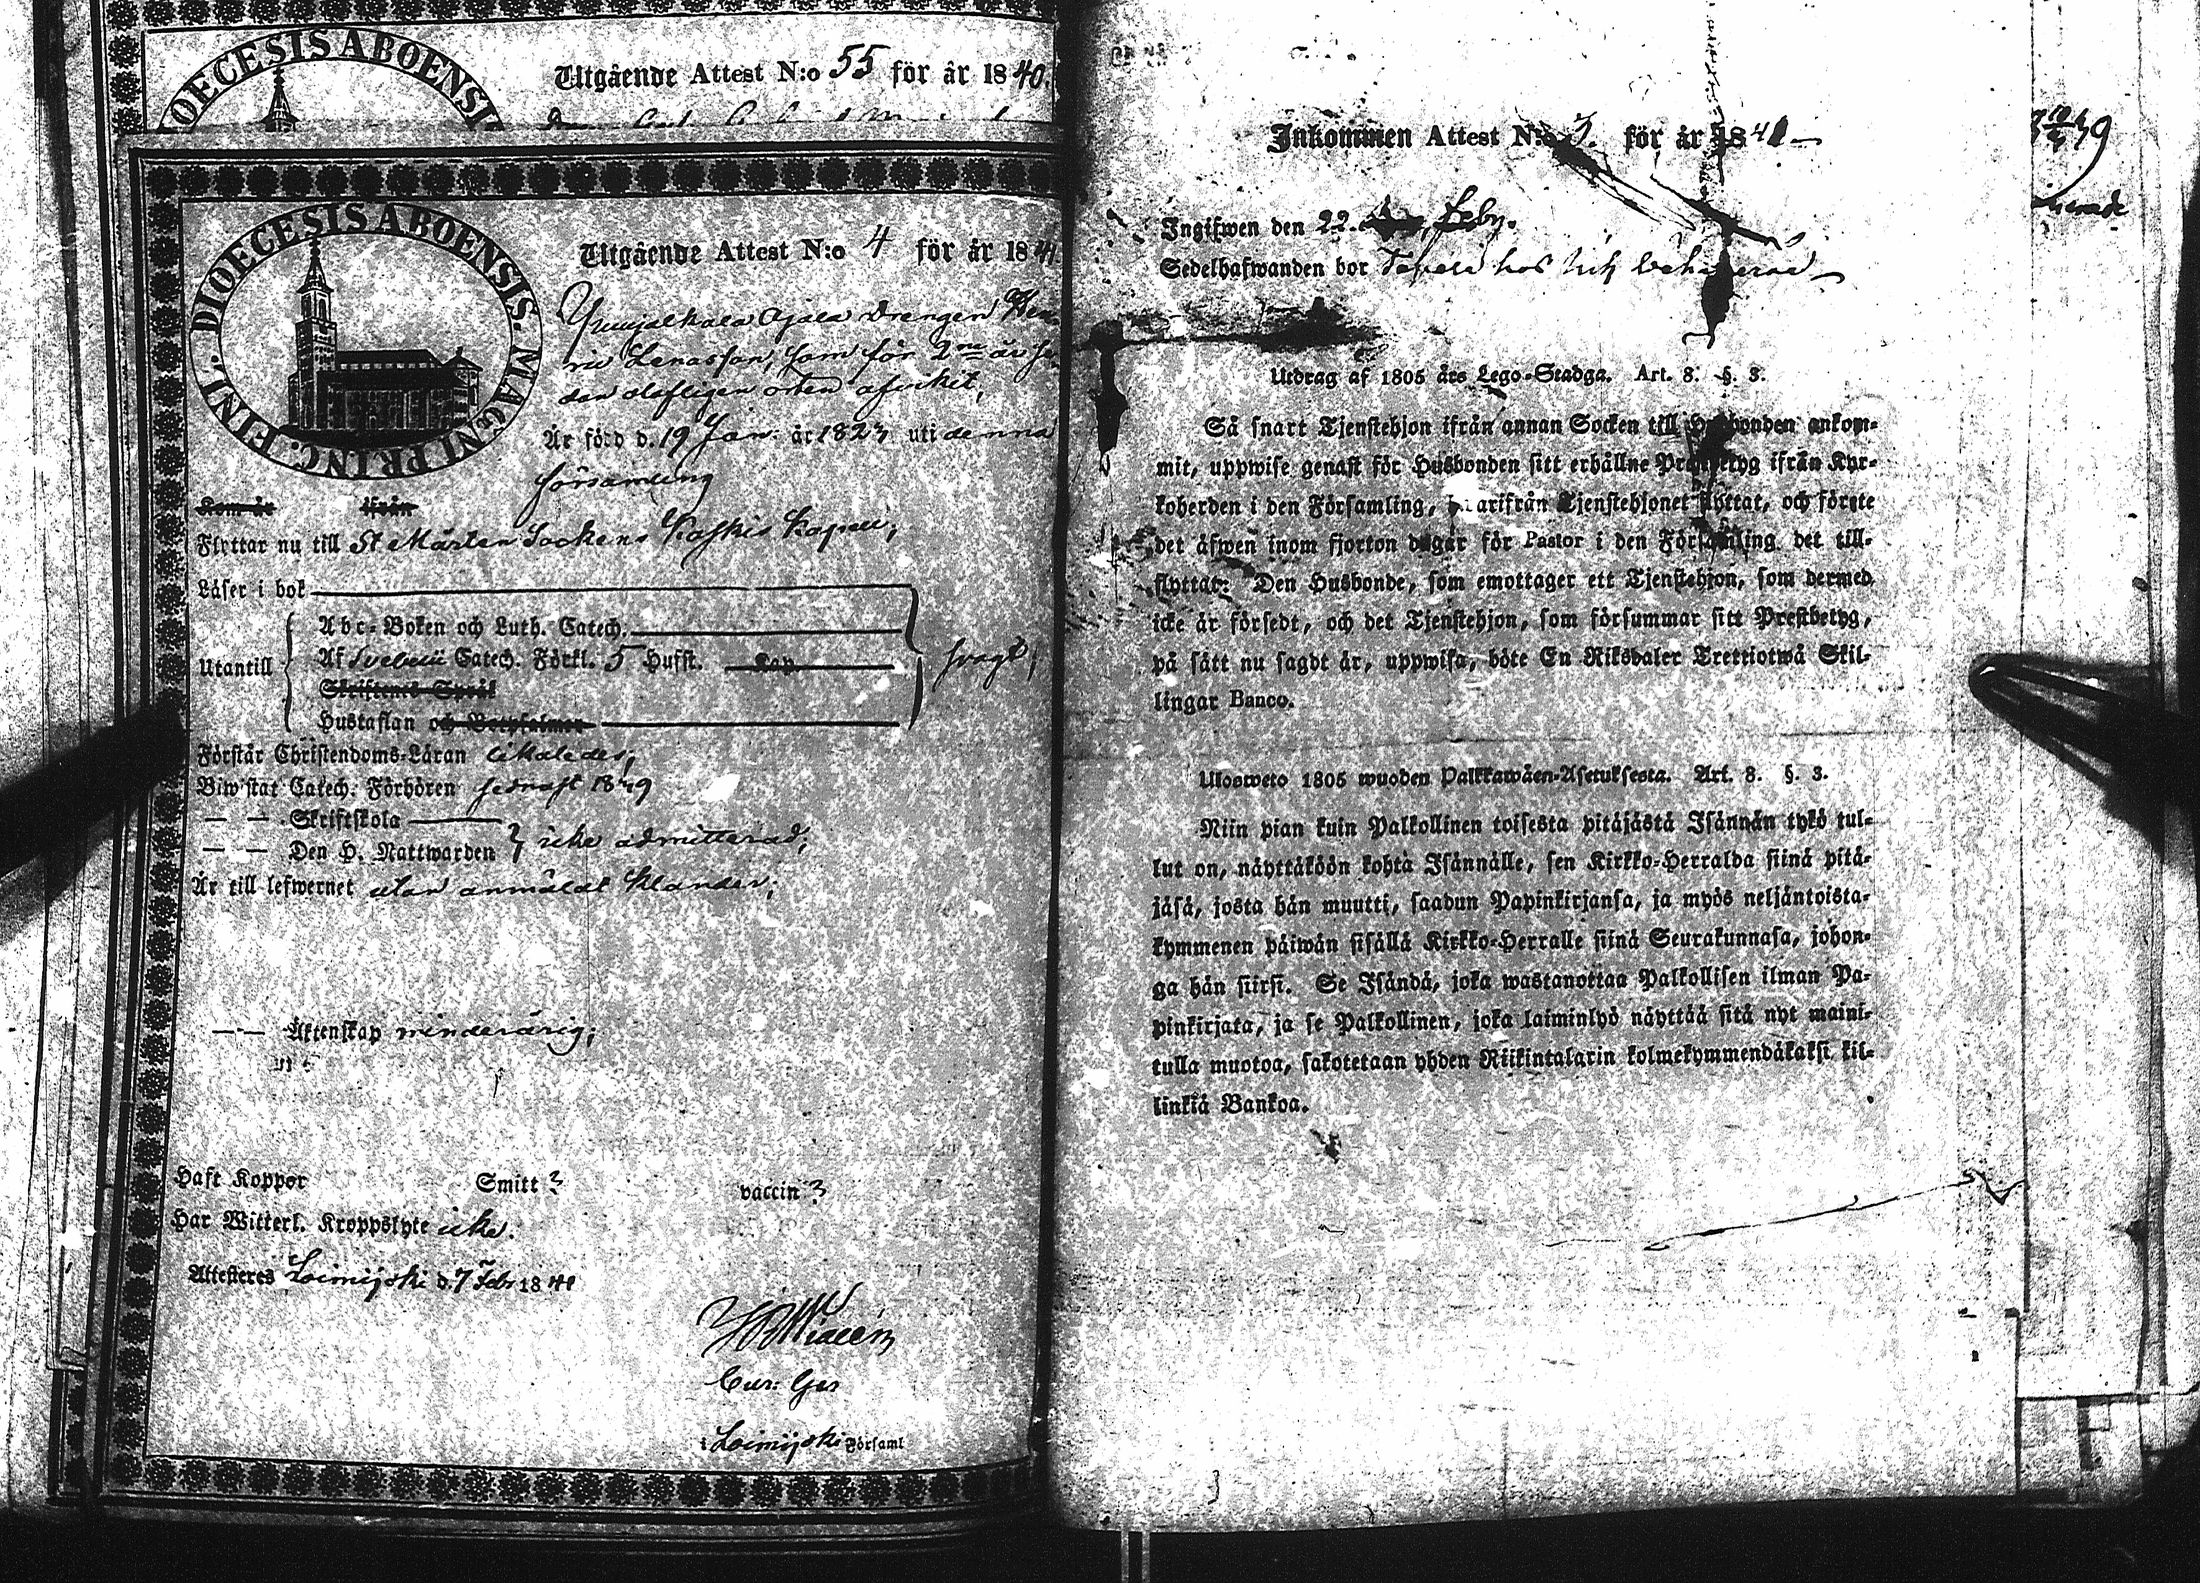 DIOECESIS ABOENSIS
Utgående Attest N:o 55 för år 1840.
DIOECESIS ABOENSIS. MAGNI PRINC. FINL.
Utgående Attest N:o 4 för år 1841
Ojala Drengen Hen-
ric Zenasson, som för 2ne år se-
dan olofligen orten afvikit,
Är född d. 19 Jan. år 1823 uti denna
församling
Kom år ifrån
Flyttar nu till St Mårtens Sockens Koskis Kapell;
Läser i bok
Abc-Boken och Luth. Catech.
Utantill Af Svebelii Catech. Förkl. 5 Hufst. Kap. svagt;
Skriftenes Språk
Hustaflan och Botpsalmer
Förstår Christendoms-Läran likaledes;
Biwistat Catech. Förhören sednast 1839
— — Skriftskola
— — Den H. Nattwarden icke admitterad;
Är till lefwernet utan anmäldt klander;
— — Äktenskap minderårig;
Haft Koppor Smitt ? vaccin ?
Har Witterl. Kroppslyte icke.
Attesteres Loimijoki d. 7 Febr 1841
Cur: Ger
i Loimijoki Församl
Inkommen Attest N:o 3. för år 1841
Ingifwen den 22. Febr.
Sedelhafwanden bor hos
Utdrag af 1805 års Lego-Stadga. Art. 8. §. 3.
Så snart Tjenstehjon ifrån annan Socken till Husbonden ankom-
mit, uppwise genast för Husbonden sitt erhållne Prestbetyg ifrån Kyr-
koherden i den Församling, hwarifrån Tjenstehjonet flyttat, och förete
det äfwen inom fjorton dagar för Pastor i den Församling det till-
flyttat: Den Husbonde, som emottager ett Tjenstehjon, som dermed
icke är försedt, och det Tjenstehjon, som försummar sitt Prestbetyg,
på sätt nu sagdt är, uppwisa, böte En Riksdaler Trettiotwå Skil-
lingar Banco.
Ulosweto 1805 wuoden Palkkawäen-Asetuksesta. Art. 8. §. 3.
Niin pian kuin Palkollinen toisesta pitäjästä Isännän tykö tul-
lut on, näyttäköön kohta Isännälle, sen Kirkko-Herralda siinä pitä-
jäsä, josta hän muutti, saadun Papinkirjansa, ja myös neljäntoista-
kymmenen päiwän sisällä Kirkko-Herralle siinä Seurakunnasa, johon-
ga hän siirsi. Se Isändä, joka wastanottaa Palkollisen ilman Pa-
pinkirjata, ja se Palkollinen, joka laiminlyö näyttää sitä nyt maini-
tulla muotoa, sakotetaan yhden Riikintalarin kolmekymmendäkaksi kil-
linkiä Bankoa.